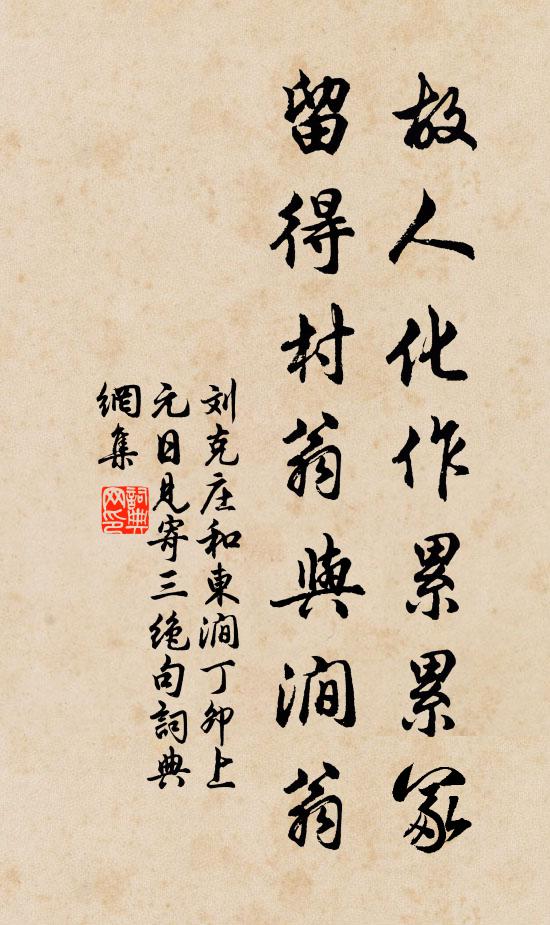 故人化作累累冢
留得村翁與澗翁
刘克庄和東澗丁卯上
元日見寄三绝句詞典
網集
詞典
网印